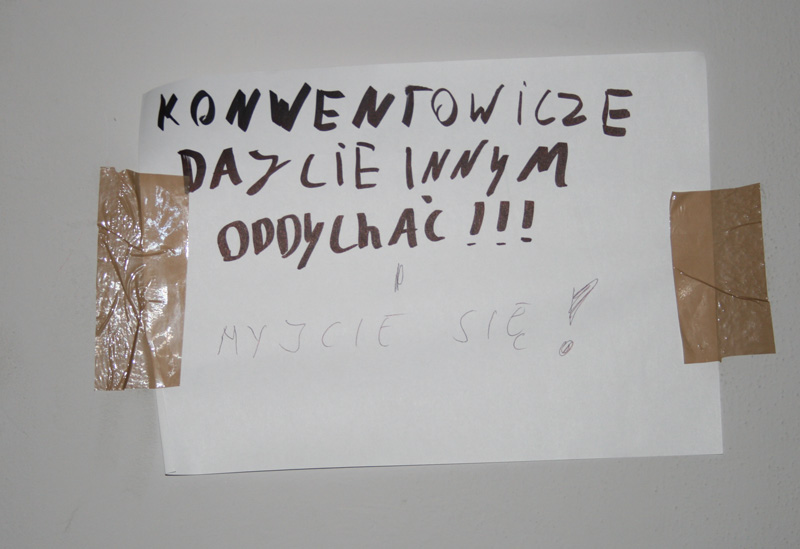 KONWENTOWICZE
DAJCIE INNYM
ODDYChAĆ!!!
MYJCIE SIĘ!